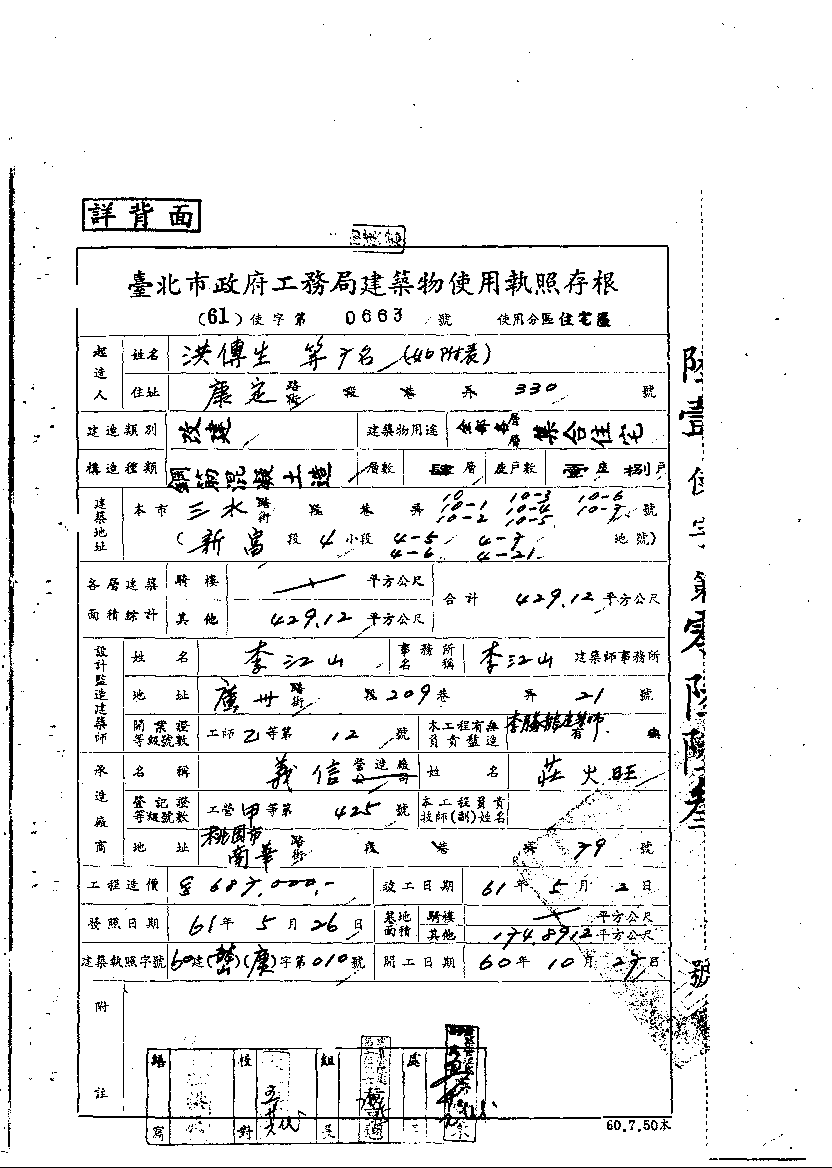 詳背面
臺北市政府工務局建築物使用執照存根
(61)使字第 0663 號 使用分區住宅區
起造人 姓名 洪傳生 等7名(如附表)
住址 康定路街 段 巷 弄 330 號
建造類別 改建 建築物用途 全部各層 集合住宅
構造種類 鋼筋混凝土造 層數 肆層 座戶數 壹座 捌戶
建築地址 本市 三水路街 段 巷 弄 10 10-1 10-2 10-3 10-4 10-5 10-6 10-7 號
(新富段 4 小段 4-5 4-6 4-7 4-21 地號)
各層建築面積綜計 騎樓 平方公尺 合計 429.12 平方公尺
其他 429.12 平方公尺
設計監造建築師 姓名 李江山 事務所名稱 李江山 建築師事務所
地址 廣州路街 段 209 巷 弄 21 號
開業證等級號數 工師乙等第 12 號 本工程有無負責監造 有 無
承造廠商 名稱 義信營造廠公司 姓名 莊火旺
登記證等級號數 工營甲等第 425 號 本工程負責技師(副)姓名
地址 桃園市南華路街 段 巷 弄 79 號
工程造價 687,000.- 竣工日期 61年 5月 2日
發照日期 61年 5月 26日 基地面積 騎樓 平方公尺
其他 174.8912 平方公尺
建築執照字號 60建()()字第010號 開工日期 60年 10月 27日
附註
繕寫 校對 組長
60.7.50本
陸壹使字第零陸陸叁號